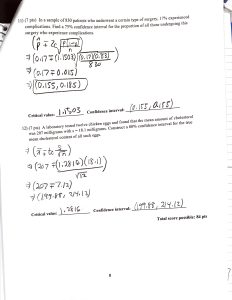 11) (7 pts) In a sample of 830 patients who underwent a certain type of surgery, 17% experienced
complications. Find a 75% confidence interval for the proportion of all those undergoing this
surgery who experience complications.
(p̂ ∓ Zc √(p̂(1-p̂)/n))
⇒ (0.17 ∓ (1.1503) √((0.17)(0.83)/830))
⇒ (0.17 ∓ 0.015)
⇒ (0.155, 0.185)
Critical value: 1.1503 Confidence interval: (0.155, 0.185)
12) (7 pts) A laboratory tested twelve chicken eggs and found that the mean amount of cholesterol
was 207 milligrams with s = 19.1 milligrams. Construct a 80% confidence interval for the true
mean cholesterol content of all such eggs.
⇒ (x̄ ∓ tc s/√n)
⇒ (207 ∓ (1.2816) (19.1)/√12)
⇒ (207 ∓ 7.12)
⇒ (199.88, 214.12)
Critical value: 1.2816 Confidence interval: (199.88, 214.12)
Total score possible: 84 pts
8